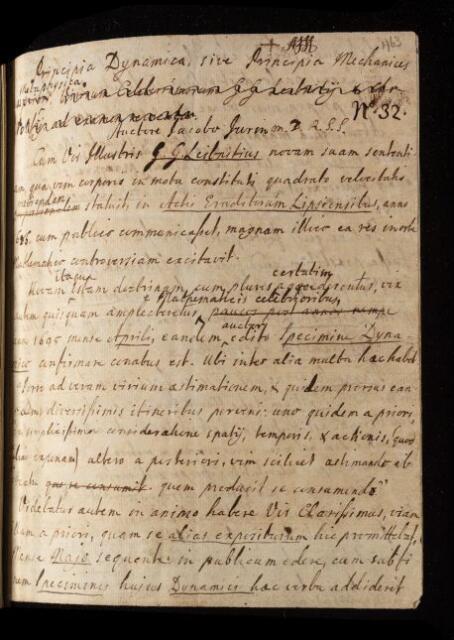 463
Principia Dynamica, sive Principia Mechanices
Metaphysica
Virorum Celeberrimorum G G Leibnitij &
ad examen revocata. N.º 32.
Auctore Jacobo Jurin M. D. R. S. S.
Cum Vir Illustris G. G. Leibnitius novam suam sententi
am, qua vim corporis in motu constituti quadrato velocitatis
statuit, in Actis Eruditorum Lipsiensibus, anno
1686. cum publico communicasset, magnam illico ea res in orbe
Mathematico controversiam excitavit.
itaque certatim
Novam istam doctrinam, cum plures aggrederentur, vix
& Mathematicis celebrioribus
autem quisquam amplecteretur, paucis post annis nempe
auctor
1695 mense Aprili, eandem, edito Specimine Dyna
mico confirmare conatus est. Ubi inter alia multa hæc habet
ad veram virium æstimationem, & quidem prorsus ean
dem, diversissimis itineribus perveni: uno quidem a priori,
ex simplicissima consideratione spatij, temporis, & actionis, (quod
alias exponam) altero a posteriori, vim scilicet æstimando ab
effectu quem producit se consumendo"
Videbatur autem in animo habere Vir Clarissimus, viam
a priori, quam se alias expositurum hic promittebat,
Mense Majo sequente in publicum edere, cum sub fi
nem Speciminis huius Dynamici hæc verba addiderit